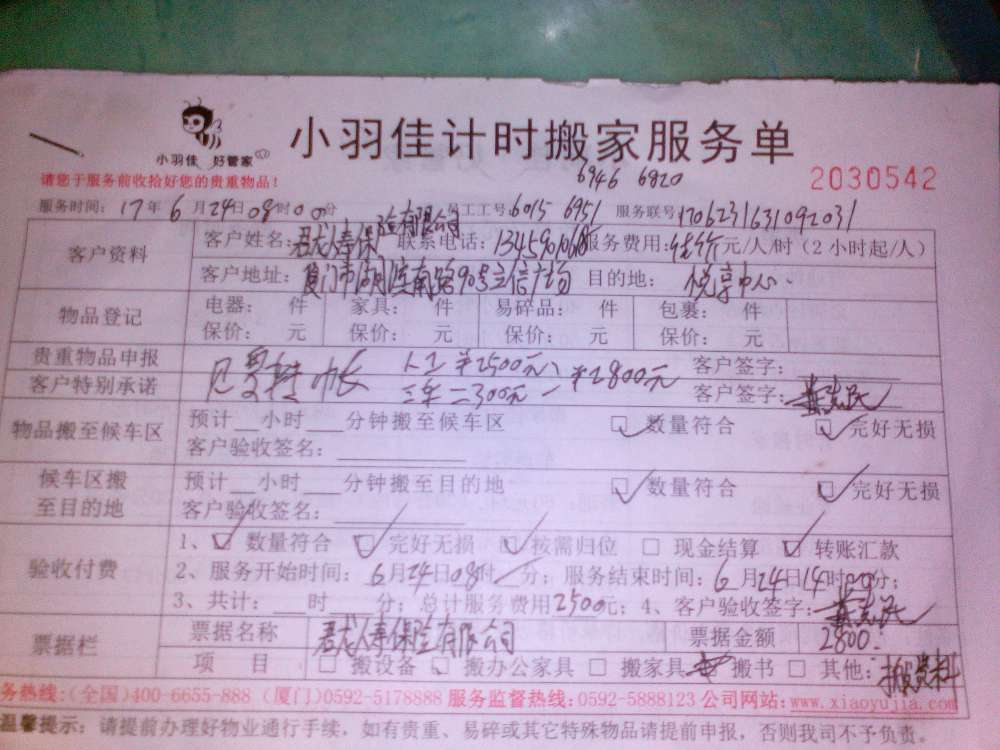 小羽佳 好管家
小羽佳计时搬家服务单
请您于服务前收拾好您的贵重物品！
6946 6820
2030542
服务时间：17年6月24日08时00分
员工工号：6015 6951
服务联号
客户资料
客户姓名：君龙人寿保险有限公司 联系电话： 服务费用： 元/人/时（2小时起/人）
客户地址：厦门市湖滨南路90号立信广场 目的地：悦享中心
物品登记
电器： 件 家具： 件 易碎品： 件 包裹： 件
保价： 元 保价： 元 保价： 元 保价： 元
贵重物品申报
人工¥2500元 客户签字：
客户特别承诺
300元 ¥2800元 客户签字：
物品搬至候车区
预计__小时___分钟搬至候车区 数量符合 完好无损
客户验收签名：
候车区搬至目的地
预计__小时___分钟搬至目的地 数量符合 完好无损
客户验收签名：
验收付费
1、 数量符合 完好无损 按需归位 现金结算 转账汇款
2、服务开始时间：6月24日08时 分；服务结束时间：6月24日14时 分；
3、共计：___时____分；总计服务费用2500元；4、客户验收签字：
票据栏
票据名称 君龙人寿保险有限公司 票据金额 2800
项 目 搬设备 搬办公家具 搬家具 搬书 其他：搬资料
务热线:(全国)400-6655-888 (厦门)0592-5178888 服务监督热线:0592-5888123 公司网站:www.xiaoyujia.com
温馨提示：请提前办理好物业通行手续，如有贵重、易碎或其它特殊物品请提前申报，否则我司不予负责。